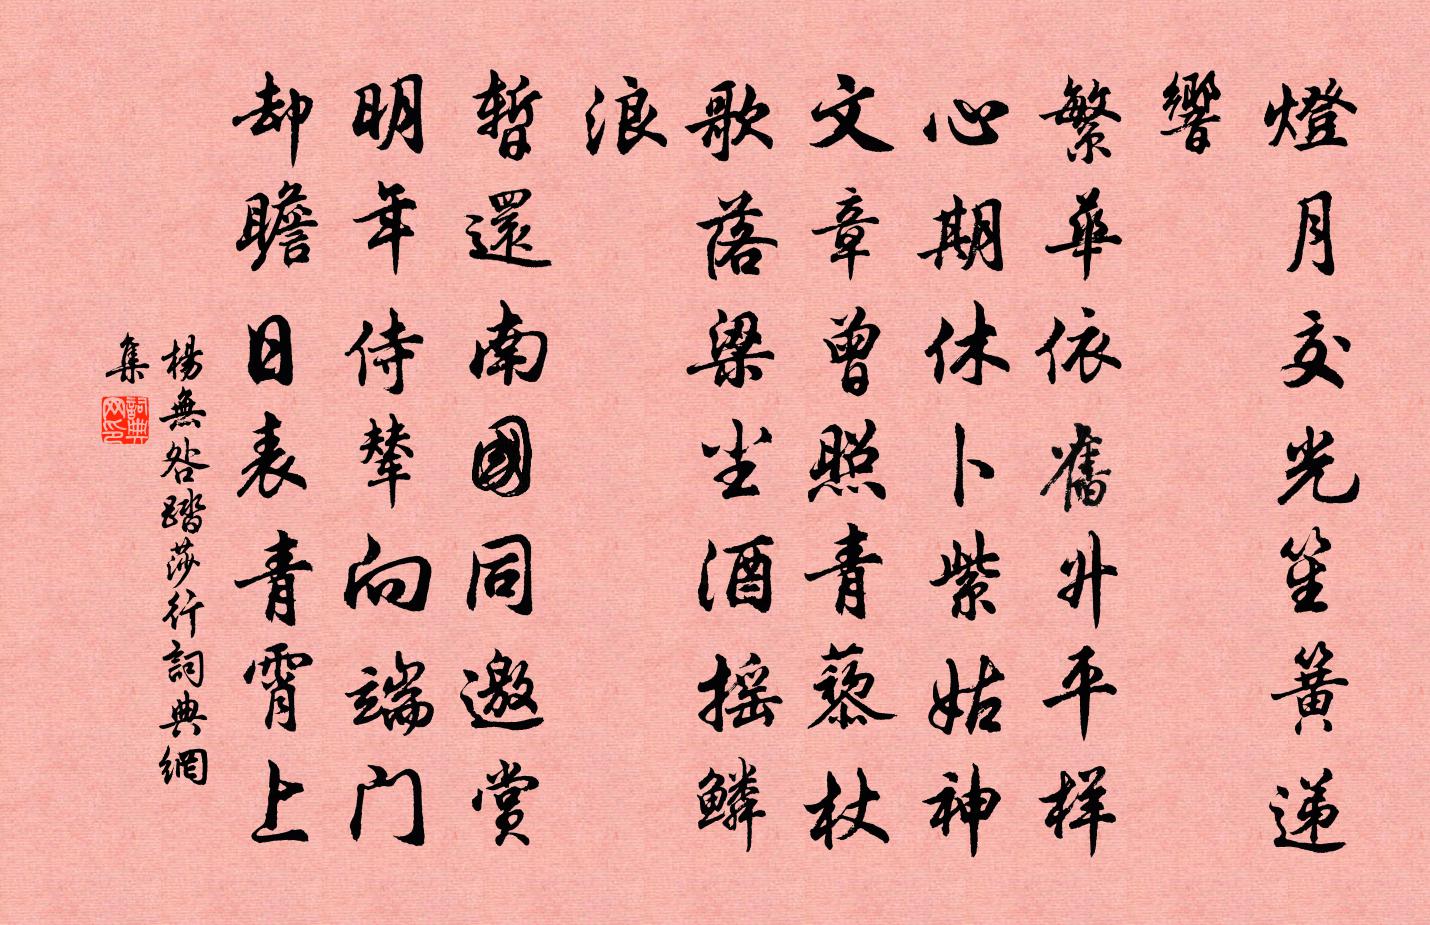 燈月交光笙簧递
響
繁華依舊升平样
心期休卜紫姑神
文章曾照青藜杖
歌落梁尘酒摇鳞
浪
暫還南國同邀赏
明年侍辇向端门
却瞻日表青霄上
楊無咎踏莎行詞典網
集
詞典
网印